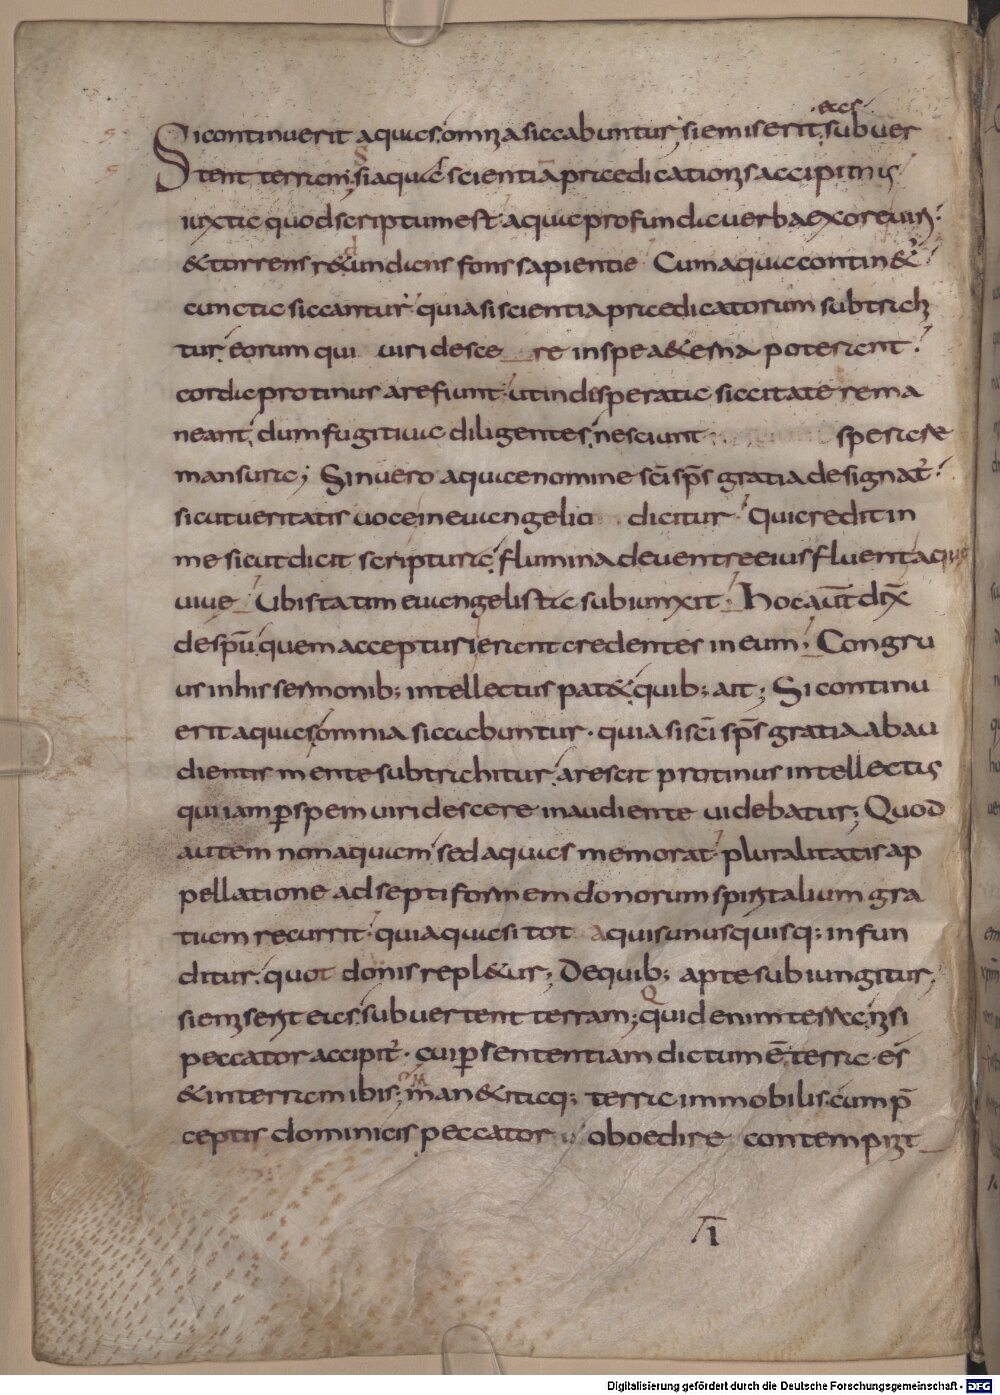 ·eas·
Si continuerit aquas. omnia siccabuntur; si emiserit. subver
tent terram; si aquā scientiā praedicationis accipimus
iuxta quod scriptum est aqua profunda verba ex ore viri.
& torrens redundans fons sapientie Cum aqua contin&
cuncta siccantur quia si scientia praedicatorum subtrahi
tur. eorum qui viridesce re in spe aeterna poterant.
corda protinus arefiunt. ut in disperata siccitate rema
neant. dum fugitiva diligentes. nesciunt sperare
mansura; Sin vero aquae nomine scī sp̄s gratia designat̄.
sicut veritatis voce in evangelio dicitur Qui credit in
me sicut dicit scriptura. flumina de ventre eius fluent aque
vive Ubi statim evangelista subiunxit Hoc aūt dix̄
de spū quem accepturi erant credentes in eum; Congru
us in his sermonib; intellectus pat& quib; ait; Si continu
erit aquas. omnia siccabuntur. quia si scī sp̄s gratia ab au
dientis mente subtrahitur. arescit protinus intellectus
qui iam p spem viridescere in audiente videbatur; Quod
autem non aquam sed aquas memorat pluralitatis ap
pellatione ad septiformem donorum spiritalium gra
tiam recurrit quia quasi tot aquis unusquisq; infun
ditur. quot donis repl&ur; De quib; apte subiungitur;
si emiserit eas. subvertent terram; quid enim terra nisi
peccator accipit̄. cui p sententiam dictum ē. terra es
& in terram ibis; man& itaq; terra immobilis. cum p̄
ceptis dominicis peccator oboedire contempnit
I
Digitalisierung gefördert durch die Deutsche Forschungsgemeinschaft - DFG